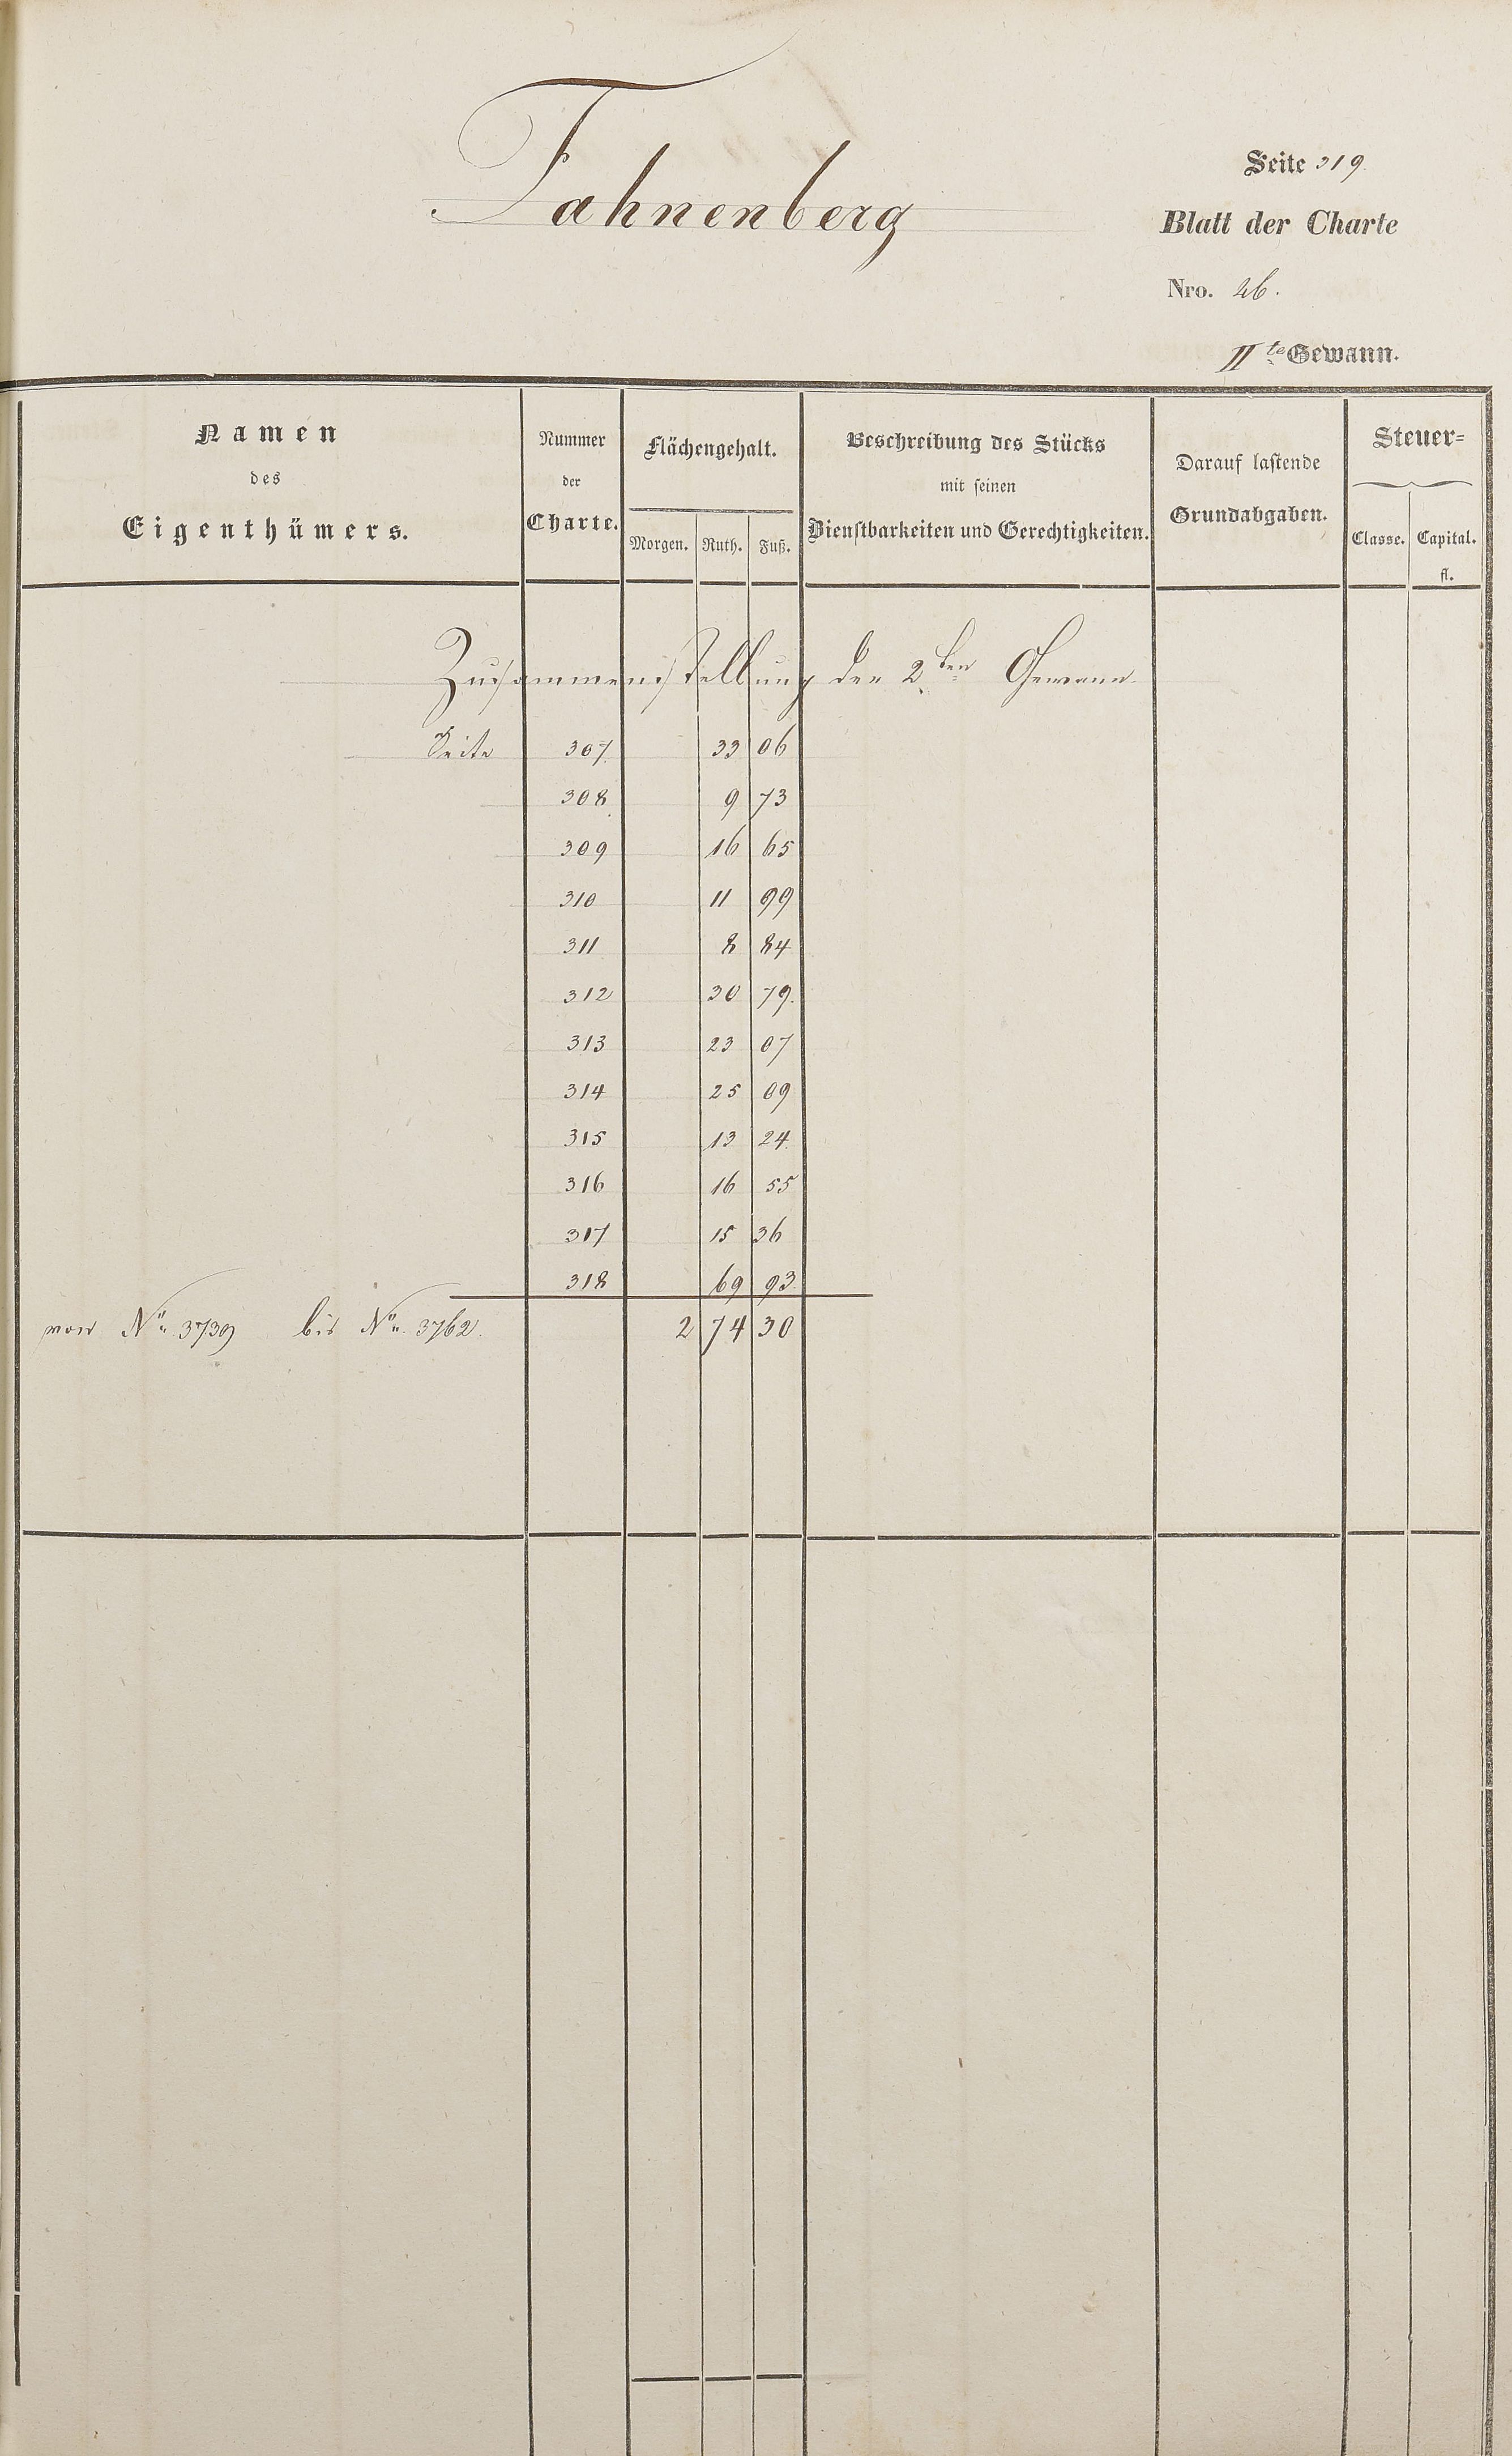 Fahnenberg
Seite 319.
Blatt der Charte
Nro. 26.
IIte Gewann.
Namen
des
Eigenthümers.
Nummer
der
Charte.
Flächengehalt.
Morgen. Ruth. Fuß.
Beschreibung des Stücks
mit seinen
Dienstbarkeiten und Gerechtigkeiten.
Darauf lastende
Grundabgaben.
Steuer=
Classe. Capital.
fl.
Zusammenstellung der 2ten Gewann
Seite 307. 33 06
308. 9 73
309 16 65
310 11 99
311 8 84
312 30 79.
313 23 07
314 25 09
315 13 24
316 16 55
317 15 36
318 69 93.
von No. 3739 bis No. 3762. 2 74 30